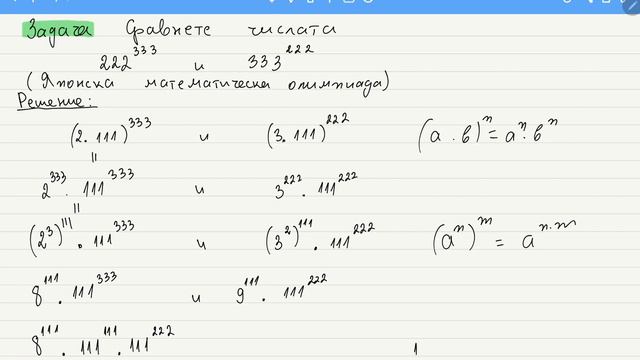 Задача Сравнете числата
222³³³ и 333²²²
(Японска математическа олимпиада)
Решение:
(2.111)³³³ и (3.111)²²² (a.b)ⁿ = aⁿ.bⁿ
=
2³³³ . 111³³³ и 3²²² . 111²²²
=
(2³)¹¹¹ . 111³³³ и (3²)¹¹¹ . 111²²² (aⁿ)ᵐ = aⁿ·ᵐ
8¹¹¹ . 111³³³ и 9¹¹¹ . 111²²²
8¹¹¹ . 111¹¹¹ . 111²²²